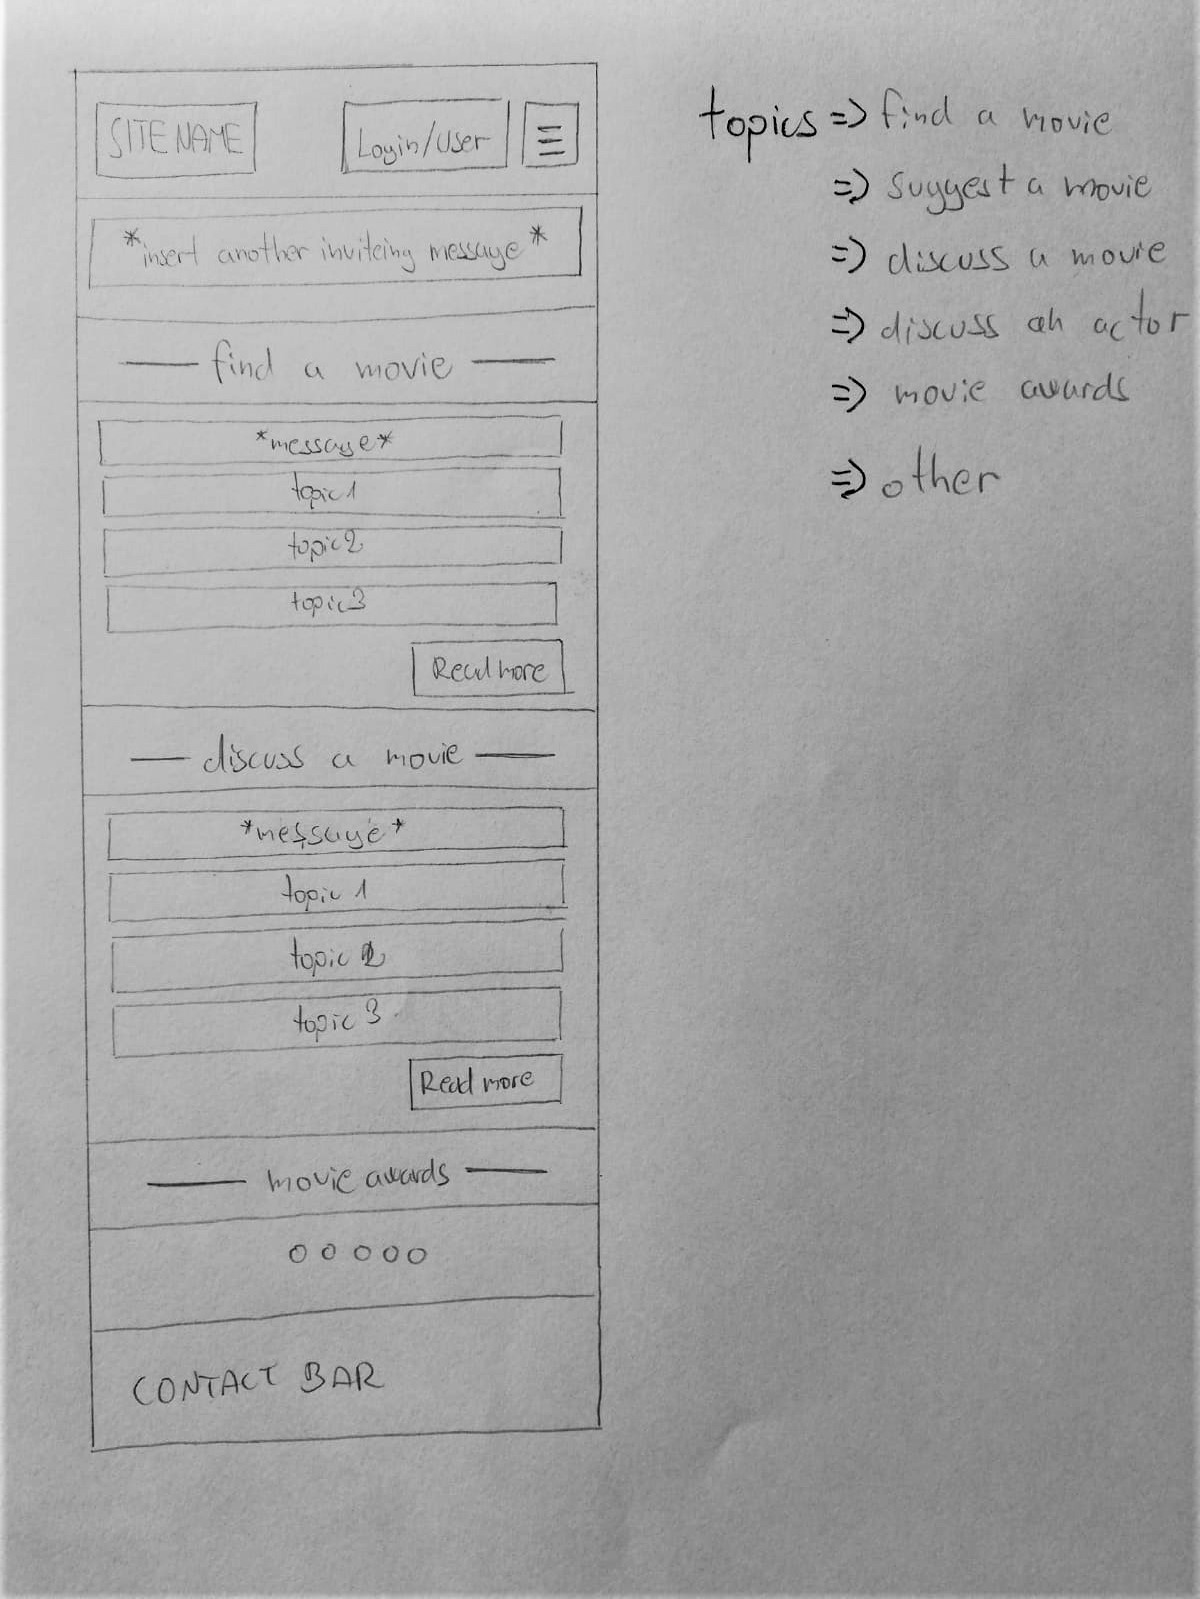 SITE NAME
Login/User
*insert another inviteing message*
find a movie
*message*
topic1
topic2
topic3
Read more
discuss a movie
*message*
topic 1
topic 2
topic 3
Read more
movie awards
CONTACT BAR
topics => find a movie
=> suggest a movie
=> discuss a movie
=> discuss an actor
=> movie awards
=> other